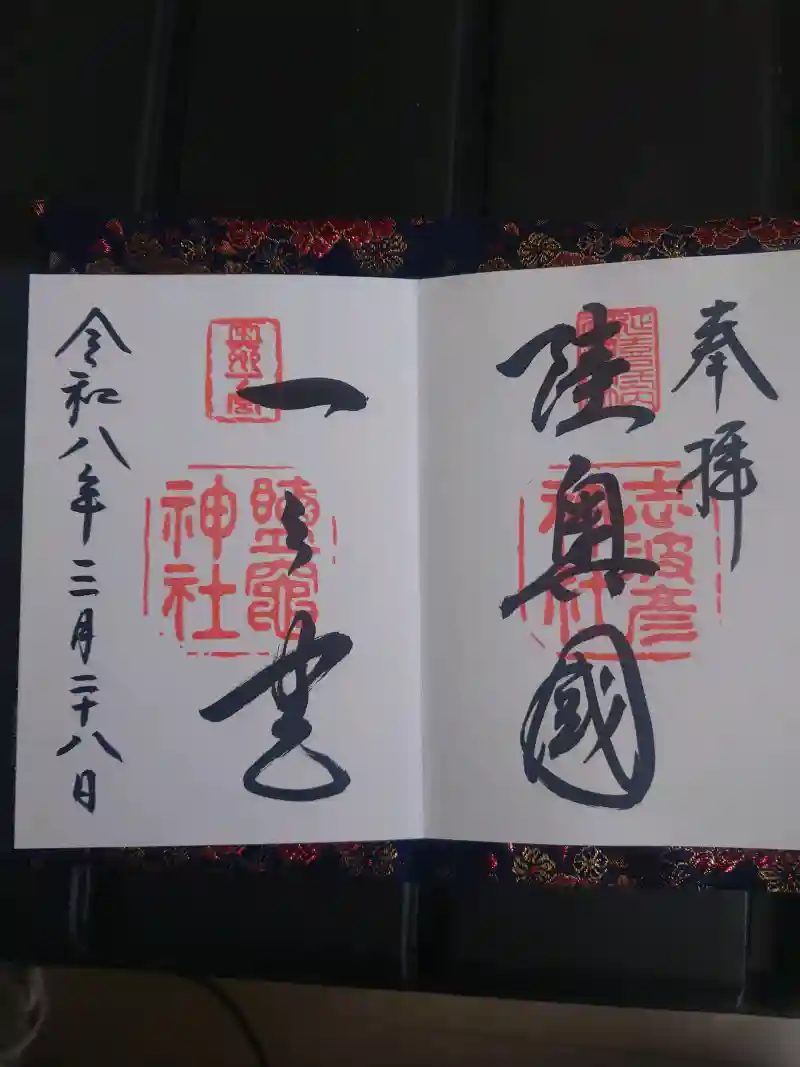 奉拝
陸奥國
志波彦
神社
一之宮
鹽竈
神社
令和八年三月二十八日